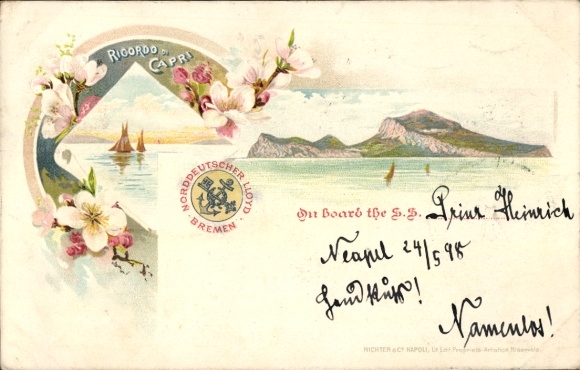 RICORDO DI
CAPRI
NORDDEUTSCHER LLOYD
BREMEN
On board the S.S. Prinz Heinrich
Neapel 24/5 98
Handkuß!
Namenlos!
RICHTER & Co. NAPOLI, Le Lett. Proprietà Artistica Riservata.